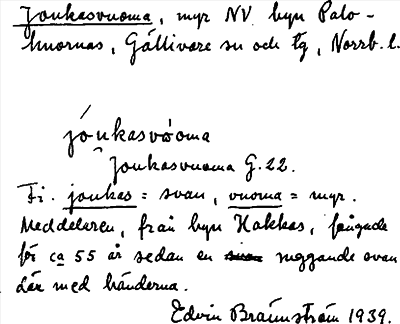 Joukasvuoma, myr NV byn Palo-
huornas, Gällivare sn och tg, Norrb. l.
jóukasvuoma
Joukasvuoma G.22.
Fi. joukas = svan, vuoma = myr.
Meddelaren, från byn Hakkas, fångade
för ca 55 år sedan en ruggande svan
där med händerna.
Edvin Brännström 1939.